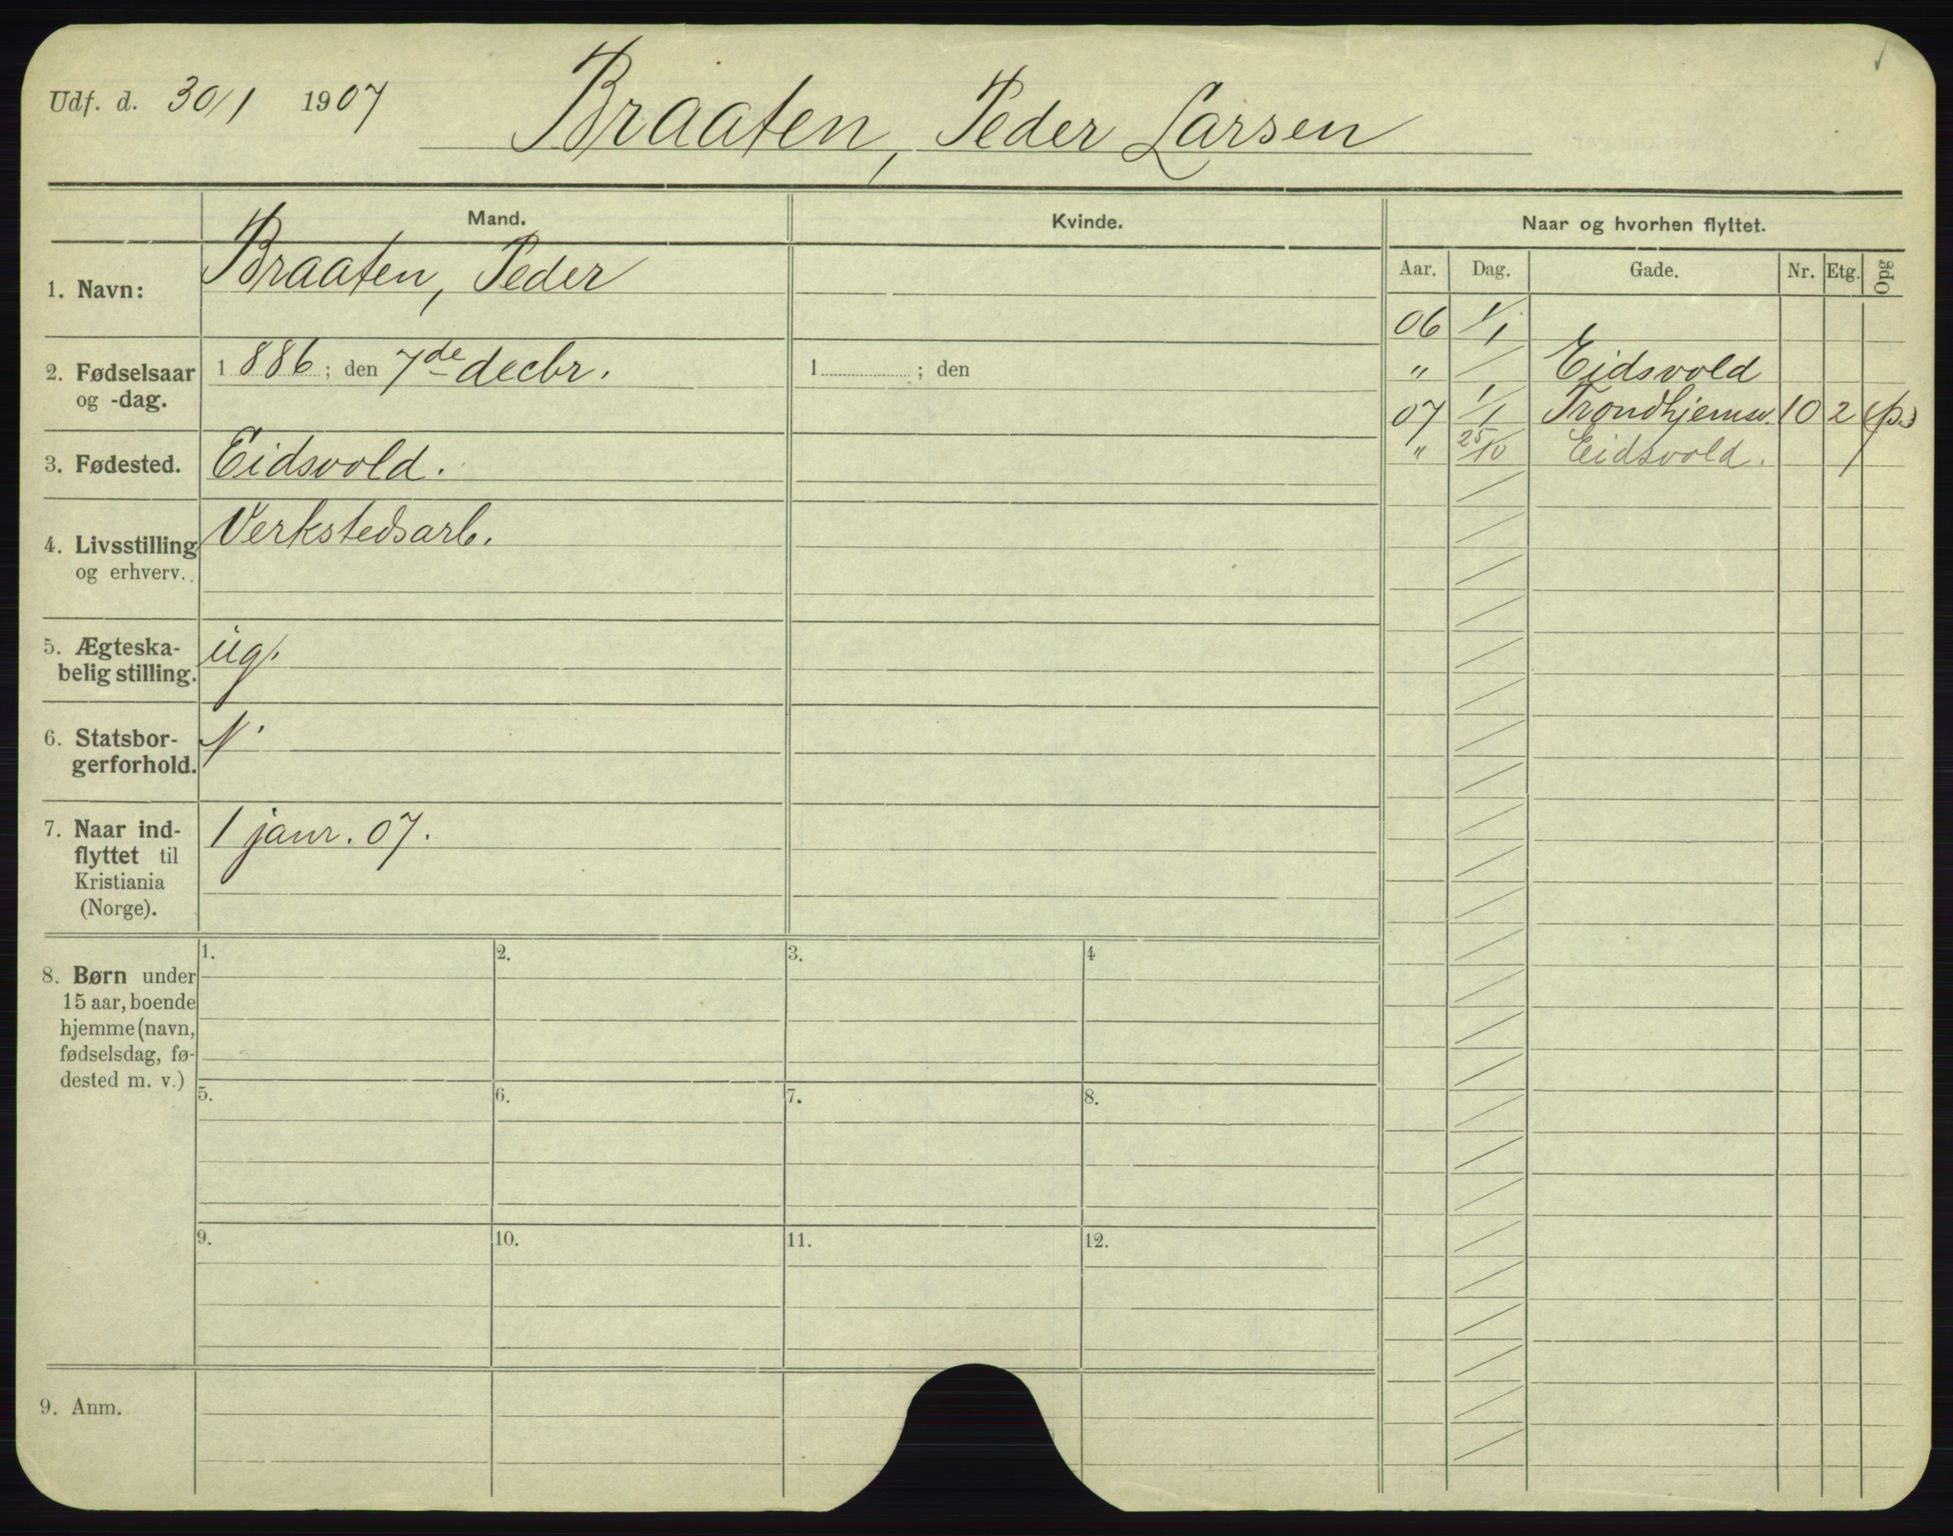 Udf. d. 30/1 1907
Braaten, Peder Larsen
Mand. Kvinde. Naar og hvorhen flyttet.
Aar. Dag. Gade. Nr. Etg. Opg
1. Navn: Braaten, Peder
06 1/1
2. Fødselsaar og -dag. 1886; den 7de decbr. 1 ; den
" Eidsvold
07 1/1 Trondhjemsv. 10 2 (p.)
" 25/10 Eidsvold.
3. Fødested. Eidsvold.
4. Livsstilling og erhverv. Verkstedsarb.
5. Ægteska-
belig stilling. ug.
6. Statsbor-
gerforhold. N.
7. Naar ind-
flyttet til
Kristiania
(Norge). 1 janr. 07.
8. Børn under
15 aar, boende
hjemme (navn,
fødselsdag, fø-
dested m. v.)
1. 2. 3. 4
5. 6. 7. 8.
9. 10. 11. 12.
9. Anm.